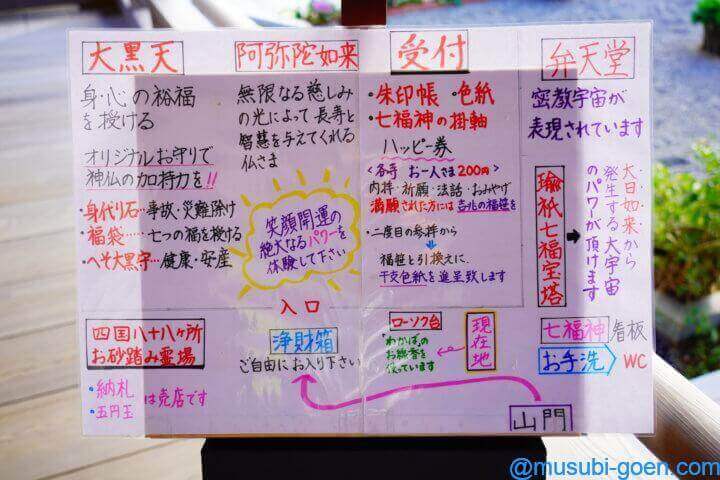 大黒天
身・心の裕福
を授ける
オリジナルお守りで
神仏の加持力を!!
・身代り石…事故・災難除け
・福袋……七つの福を授ける
・へそ大黒天…健康・安産
阿弥陀如来
無限なる慈しみ
の光によって長寿と
智慧を与えてくれる
仏さま
笑顔開運の
絶大なるパワーを
体験して下さい
受付
・朱印帳 ・色紙
・七福神の掛軸
ハッピー券
<各寺 お一人さま200円>
内拝・祈願・法話・おみやげ
満願された方には吉兆の福笹を
・二度目の参拝から
福笹と引換えに、
干支色紙を進呈致します
弁天堂
密教宇宙が
表現されています
瑜祇七福宝塔
大日如来から
発生する大宇宙
のパワーが頂けます
四国八十八ヶ所
お砂踏み霊場
・納札
・五円玉
は売店です
入口
浄財箱
ご自由にお入り下さい
ローソク台
・わかばの
お線香を
使っています
現在地
七福神 看板
お手洗 WC
山門
@musubi-goen.com